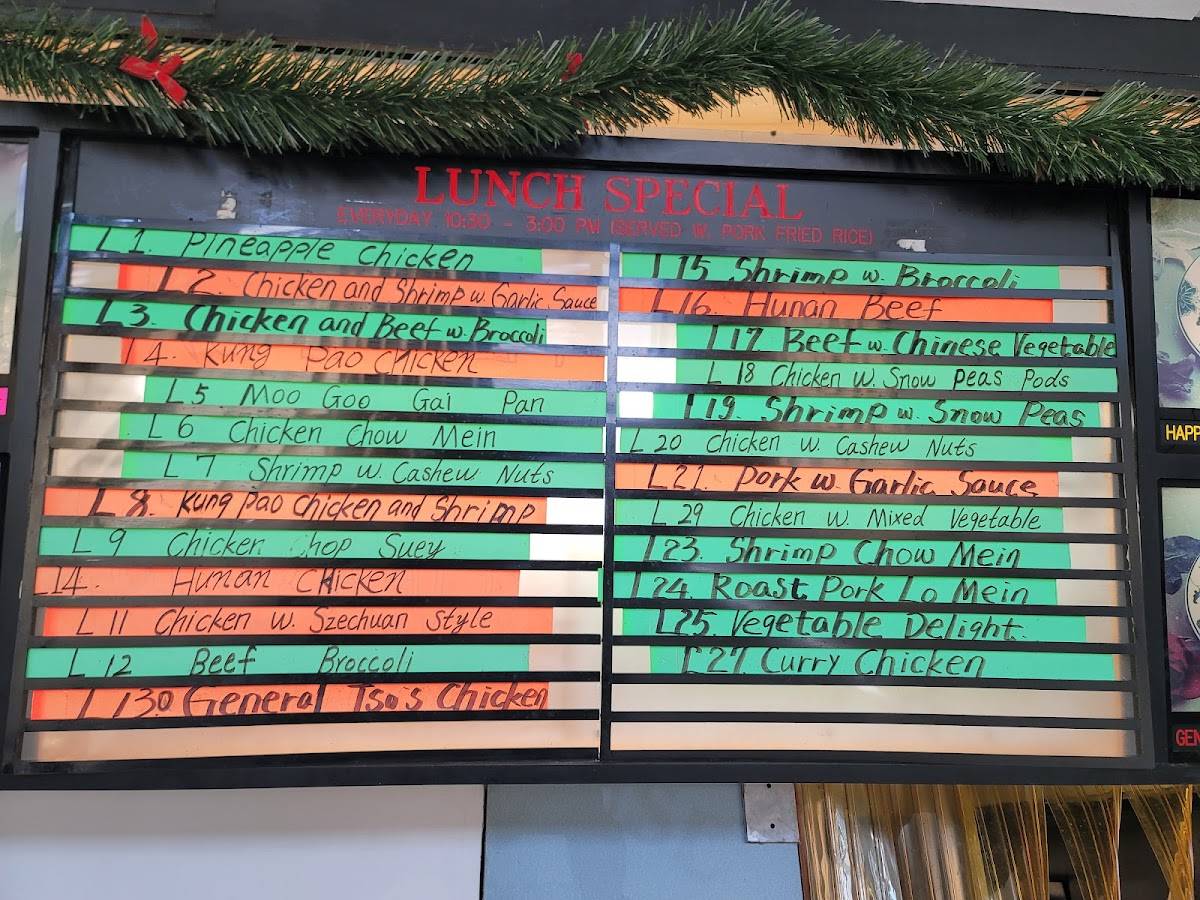 LUNCH SPECIAL
EVERYDAY 10:30 - 3:00 PM (SERVED W. PORK FRIED RICE)
L 1. Pineapple Chicken
L 2. Chicken and Shrimp w. Garlic Sauce
L 3. Chicken and Beef w. Broccoli
L 4. Kung Pao Chicken
L 5 Moo Goo Gai Pan
L 6 Chicken Chow Mein
L 7 Shrimp w. Cashew Nuts
L 8. Kung Pao Chicken and Shrimp
L 9 Chicken Chop Suey
L14. Hunan Chicken
L 11 Chicken w. Szechuan Style
L 12 Beef Broccoli
L 13. General Tso's Chicken
L15 Shrimp w. Broccoli
L16. Hunan Beef
L17 Beef w. Chinese Vegetable
L 18 Chicken w. Snow Peas Pods
L19. Shrimp w. Snow Peas
L 20 Chicken w. Cashew Nuts
L21. Pork w. Garlic Sauce
L 29 Chicken w. Mixed Vegetable
L23. Shrimp Chow Mein
L24. Roast Pork Lo Mein
L25. Vegetable Delight.
L27. Curry Chicken
HAPP
GEN